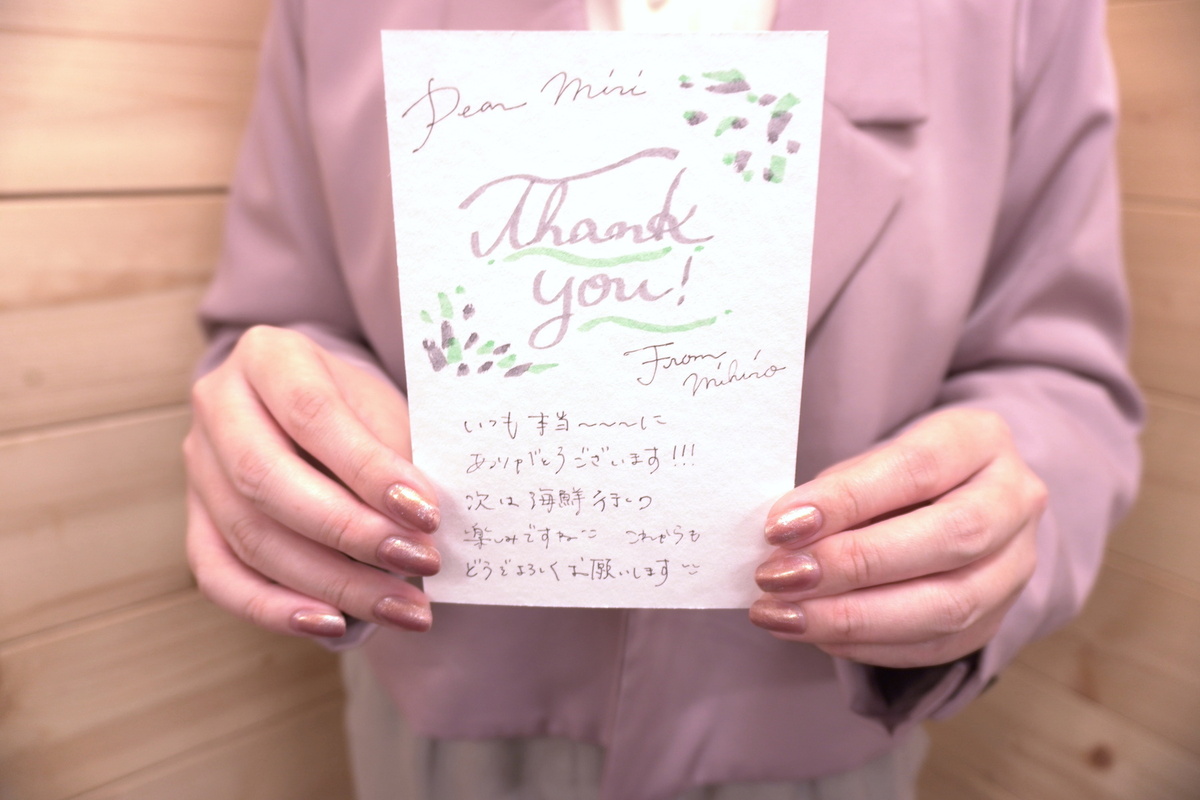 Dear Miri
Thank
you!
From
mihiro
いつも本当〜〜〜に
ありがとうございます!!!
次は海鮮行くの
楽しみですね これからも
どうぞよろしくお願いします